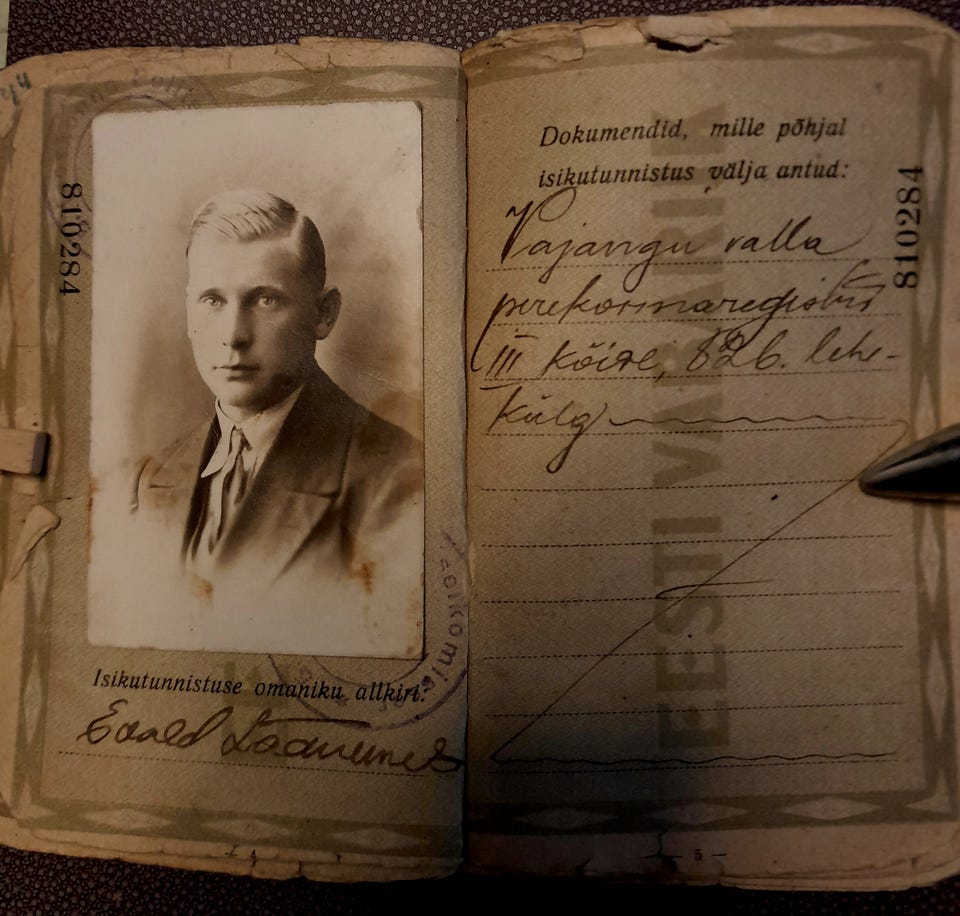 810284
Isikutunnistuse omaniku allkiri:
Eduald
4
Dokumendid, mille põhjal
isikutunnistus välja antud:
Vajangu valla
perekonnaregistris
III köite, 826. lehe-
külg
EESTI VABARIIK
810284
— 5 —